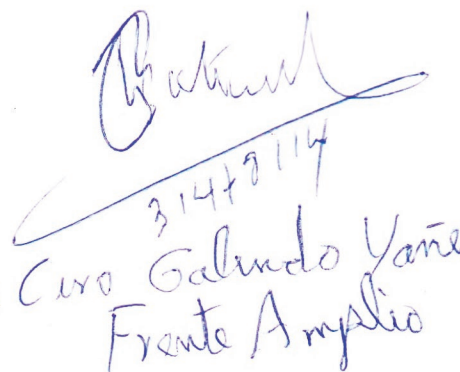 31478114
Ciro Galindo Yañe
Frente Amplio